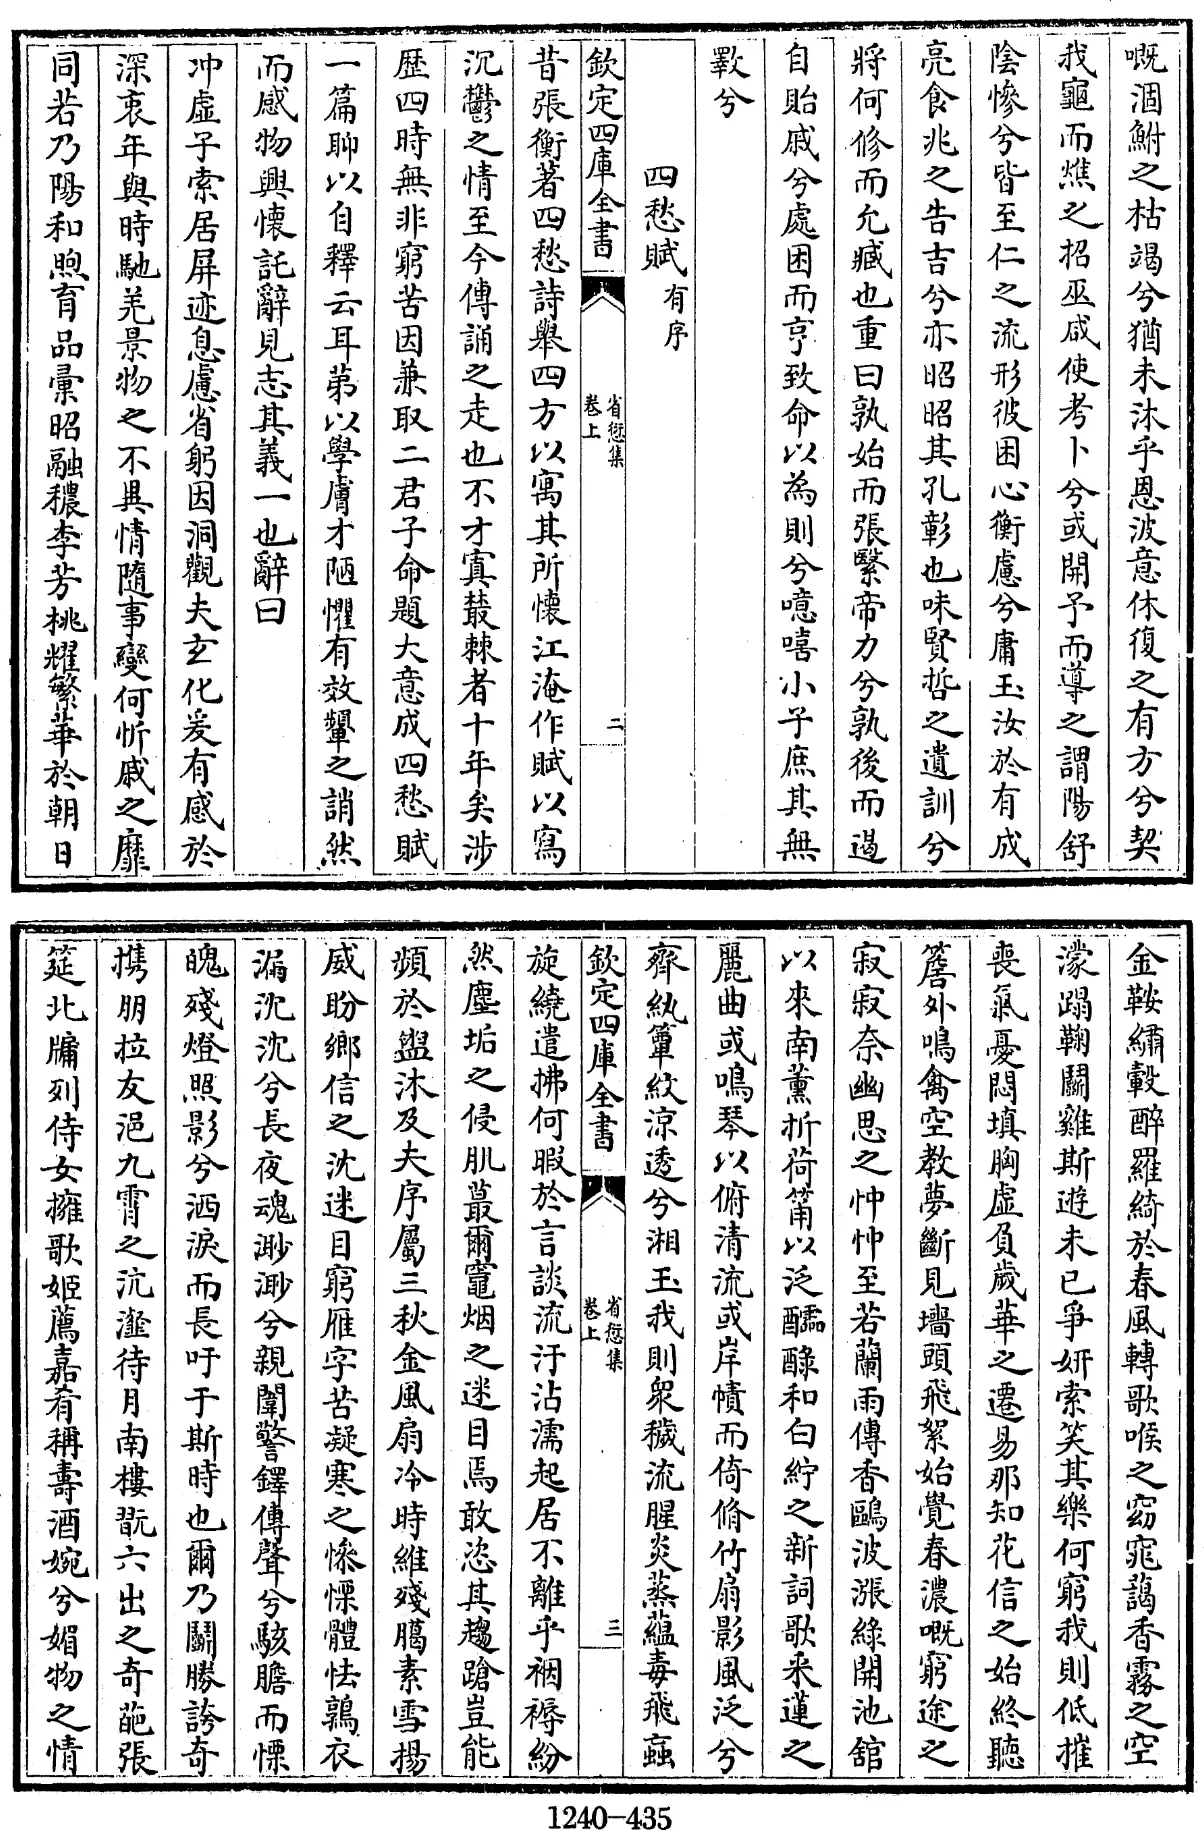 嘅涸鮒之枯竭兮猶未沐乎恩波意休復之有方兮契
我龜而燋之招巫咸使考卜兮或開予而導之謂陽舒
陰慘兮皆至仁之流形彼困心衡慮兮庸玉汝於有成
亮食兆之告吉兮亦昭昭其孔彰也味賢哲之遺訓兮
將何修而允臧也重曰孰始而張繄帝力兮孰後而遏
自貽戚兮處困而亨致命以為則兮噫嘻小子庶其無
斁兮
四愁賦有序
欽定四庫全書
省愆集
卷上
二
昔張衡著四愁詩舉四方以寓其所懷江淹作賦以寫
沉鬱之情至今傳誦之走也不才寘叢棘者十年矣涉
歷四時無非窮苦因兼取二君子命題大意成四愁賦
一篇聊以自釋云耳第以學膚才陋懼有效顰之誚然
而感物興懷託辭見志其義一也辭曰
冲虛子索居屏迹息慮省躬因洞觀夫玄化爰有感於
深衷年與時馳羌景物之不異情隨事變何忻戚之靡
同若乃陽和煦育品彙昭融穠李芳桃耀繁華於朝日
金鞍繡轂醉羅綺於春風轉歌喉之窈窕藹香霧之空
濛蹋鞠鬭雞斯遊未已爭妍索笑其樂何窮我則低摧
喪氣憂悶填胸虛負歲華之遷易那知花信之始終聽
簷外鳴禽空教夢斷見墻頭飛絮始覺春濃嘅窮途之
寂寂奈幽思之忡忡至若蘭雨傳香鷗波漲綠開池舘
以來南薰折荷筩以泛醽醁和白紵之新詞歌采蓮之
麗曲或鳴琴以俯清流或岸幘而倚脩竹扇影風泛兮
齊紈簟紋涼透兮湘玉我則衆穢流腥炎蒸蘊毒飛䖟
欽定四庫全書
省愆集
卷上
三
旋繞遣拂何暇於言談流汙沾濡起居不離乎裀褥紛
然塵垢之侵肌蕞爾竈烟之迷目焉敢恣其趨蹌豈能
頻於盥沐及夫序屬三秋金風扇冷時維殘臈素雪揚
威盼鄉信之沈迷目窮雁字苦凝寒之慘慄體怯鶉衣
漏沉沉兮長夜魂渺渺兮親闈警鐸傳聲兮駭膽而慄
魄殘燈照影兮洒淚而長吁于斯時也爾乃鬭勝誇奇
携朋拉友浥九霄之沆瀣待月南樓翫六出之奇葩張
筵北牖列侍女擁歌姬薦嘉肴稱壽酒婉兮媚物之情
1240-435